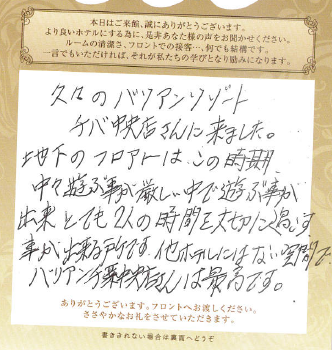 本日はご来館、誠にありがとうございます。
より良いホテルにする為に、是非あなた様の声をお聞かせください。
ルームの清潔さ、フロントでの接客…、何でも結構です。
一言でもいただければ、それが私たちの学びとなり励みになります。
久々のバリアンリゾート
千バ中央店さんに来ました。
地下のフロアーは、この時期
中々遊ぶ事が厳しい中で遊ぶ事が
出来とても2人の時間を大切に過す
事が出来る所です。他ホテルにはない空間で
バリアン千葉中央店さんは最高です。
ありがとうございます。フロントへお渡しください。
ささやかなお礼をさせていただきます。
書ききれない場合は裏面へどうぞ